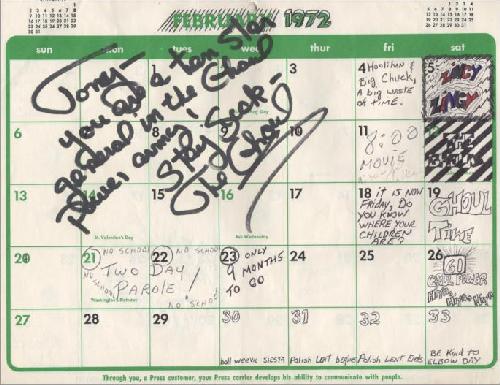 FEBRUARY 1972
sun mon tues wed thur fri sat
Tony-
you are a ten star
general in the Ghoul
Power army!
Stay Sick-
The Ghoul
3
4 Hoolihan &
Big Chuck,
A big waste
of time.
5
ZACY
LINCY
6
10
11
8:00
MOVIE
13
14
St. Valentine's Day
15
16
Ash Wednesday
17
18 it is NOW
FRIDAY, DO
YOU KNOW
WHERE YOUR
CHILDREN
ARE?
19
GHOUL
TIME
20
21
NO SCHOOL
22
NO SCHOOL
TWO DAY
PAROLE!
NO SCHOOL
NO SCHOOL
Washington's Birthday
23 ONLY
9 MONTHS
TO GO
24
25
26
GO
GHOUL POWER
27
28
29
30
boll weevil SIESTA
31
Polish Lent begins
32
Polish Lent Ends
33
BE KIND TO
ELBOW DAY
Through you, a Press customer, your Press carrier develops his ability to communicate with people.